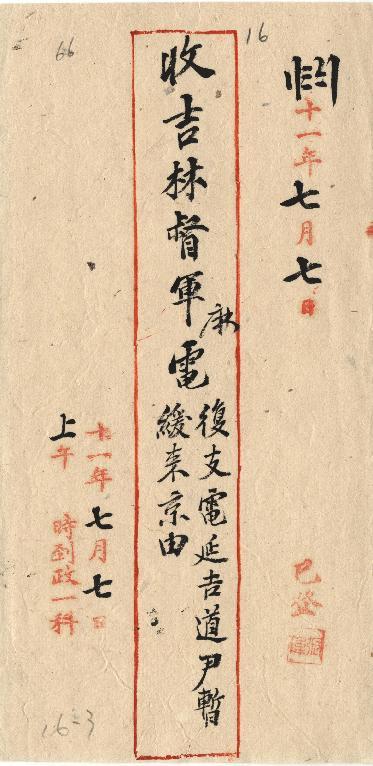 十一年七月七日
收吉林督軍電
麻
復支電延吉道尹暫
緩来京由
十一年七月七日
上午 時到政一科
已登
66
16
16-3